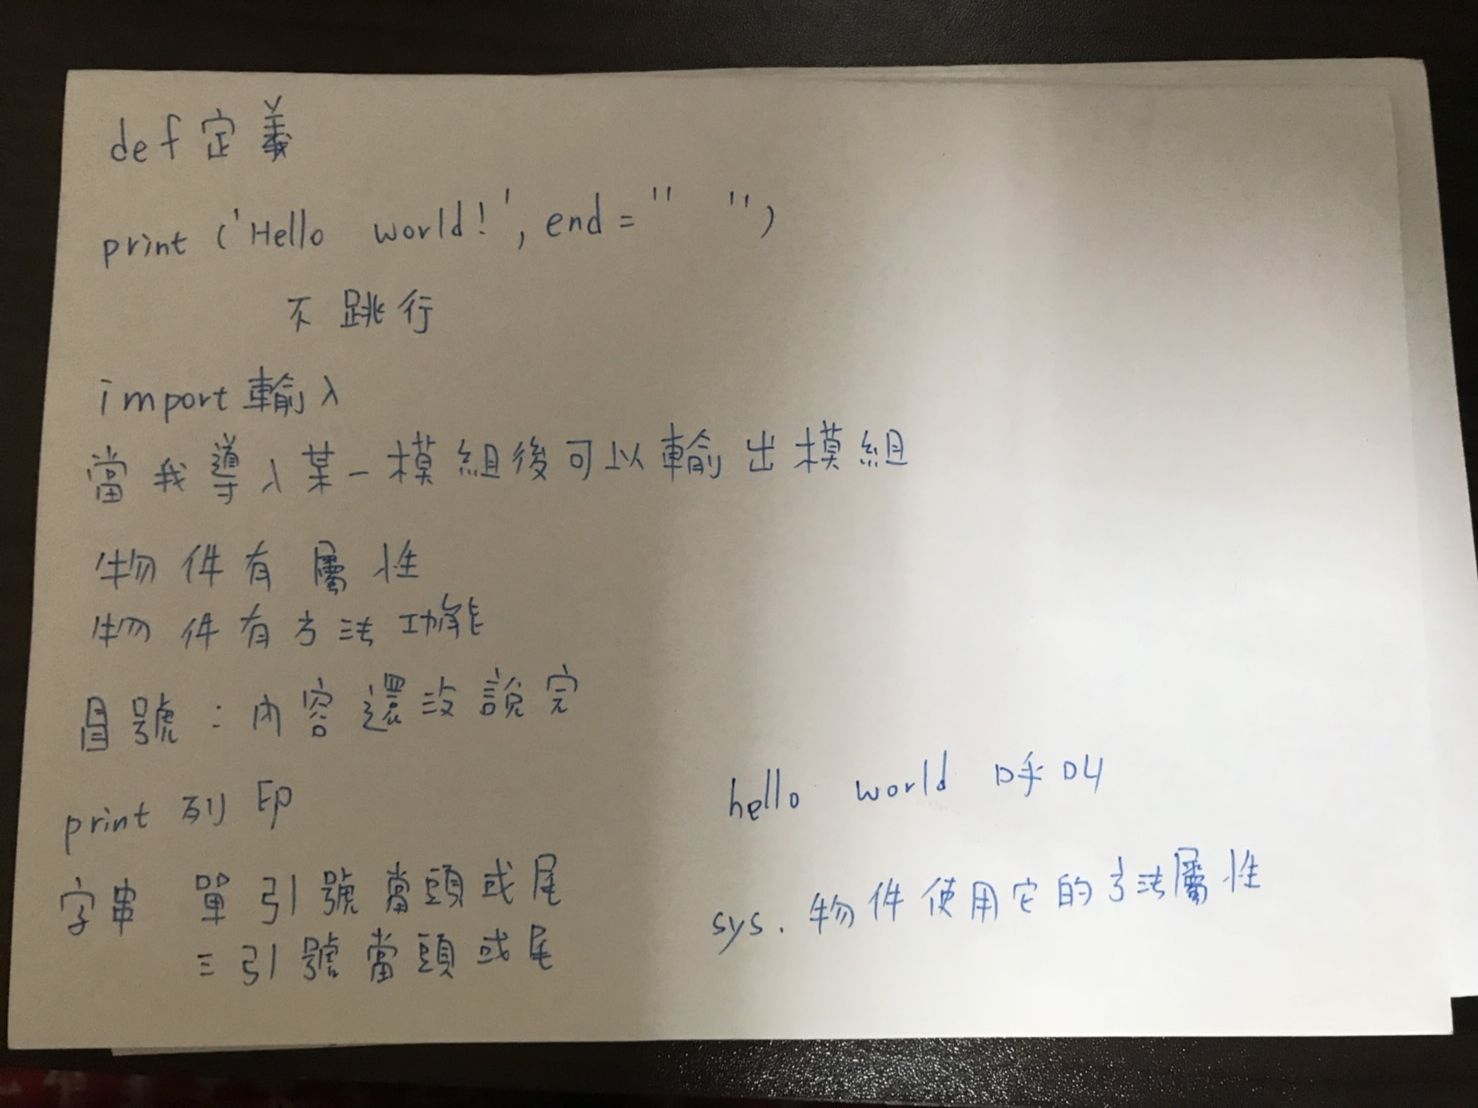 def定義
print ('Hello world!', end = " ")
不跳行
import輸入
當我導入某一模組後可以輸出模組
物件有屬性
物件有方法功能
冒號：內容還沒說完
print 列印
字串 單引號當頭或尾
三引號當頭或尾
hello world 呼叫
sys. 物件使用它的方法屬性